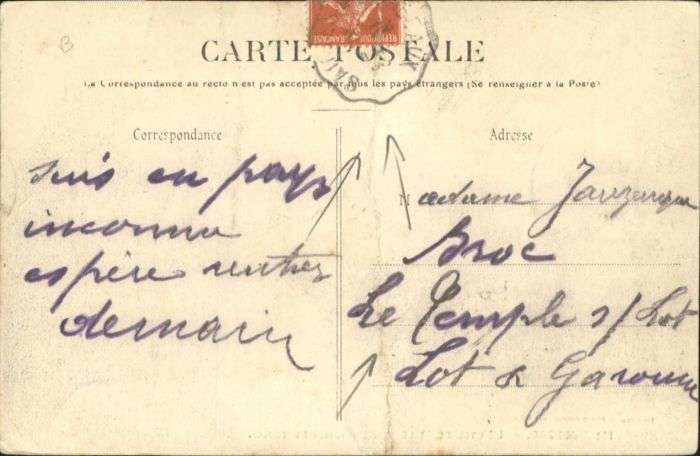 B
REPUBLIQUE FRANCAISE
CARTE POSTALE
La Correspondance au recto n'est pas acceptée par tous les pays étrangers (Se renseigner à la Poste)
Correspondance
suis en pays
inconnu
espère rentrer
demain
Adresse
Madame
Broc
Le Temple s/ Lot
Lot & Garonne